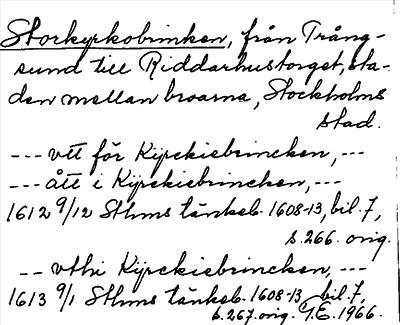 Storkyrkobrinken, från Trång-
sund till Riddarhustorget, sta-
den mellan broarna, Stockholms
stad.
--- vtt för Kyrckiebrincken, ---
--- ått i Kyrckiebrincken, ---
1612 9/12 Sthms tänkeb. 1608-13, bil. 7,
s. 266. orig.
-- vthi Kyrckiebrincken, ---
1613 9/1 Sthms tänkeb. 1608-13 bil. 7,
s. 267. orig. G.E. 1966.